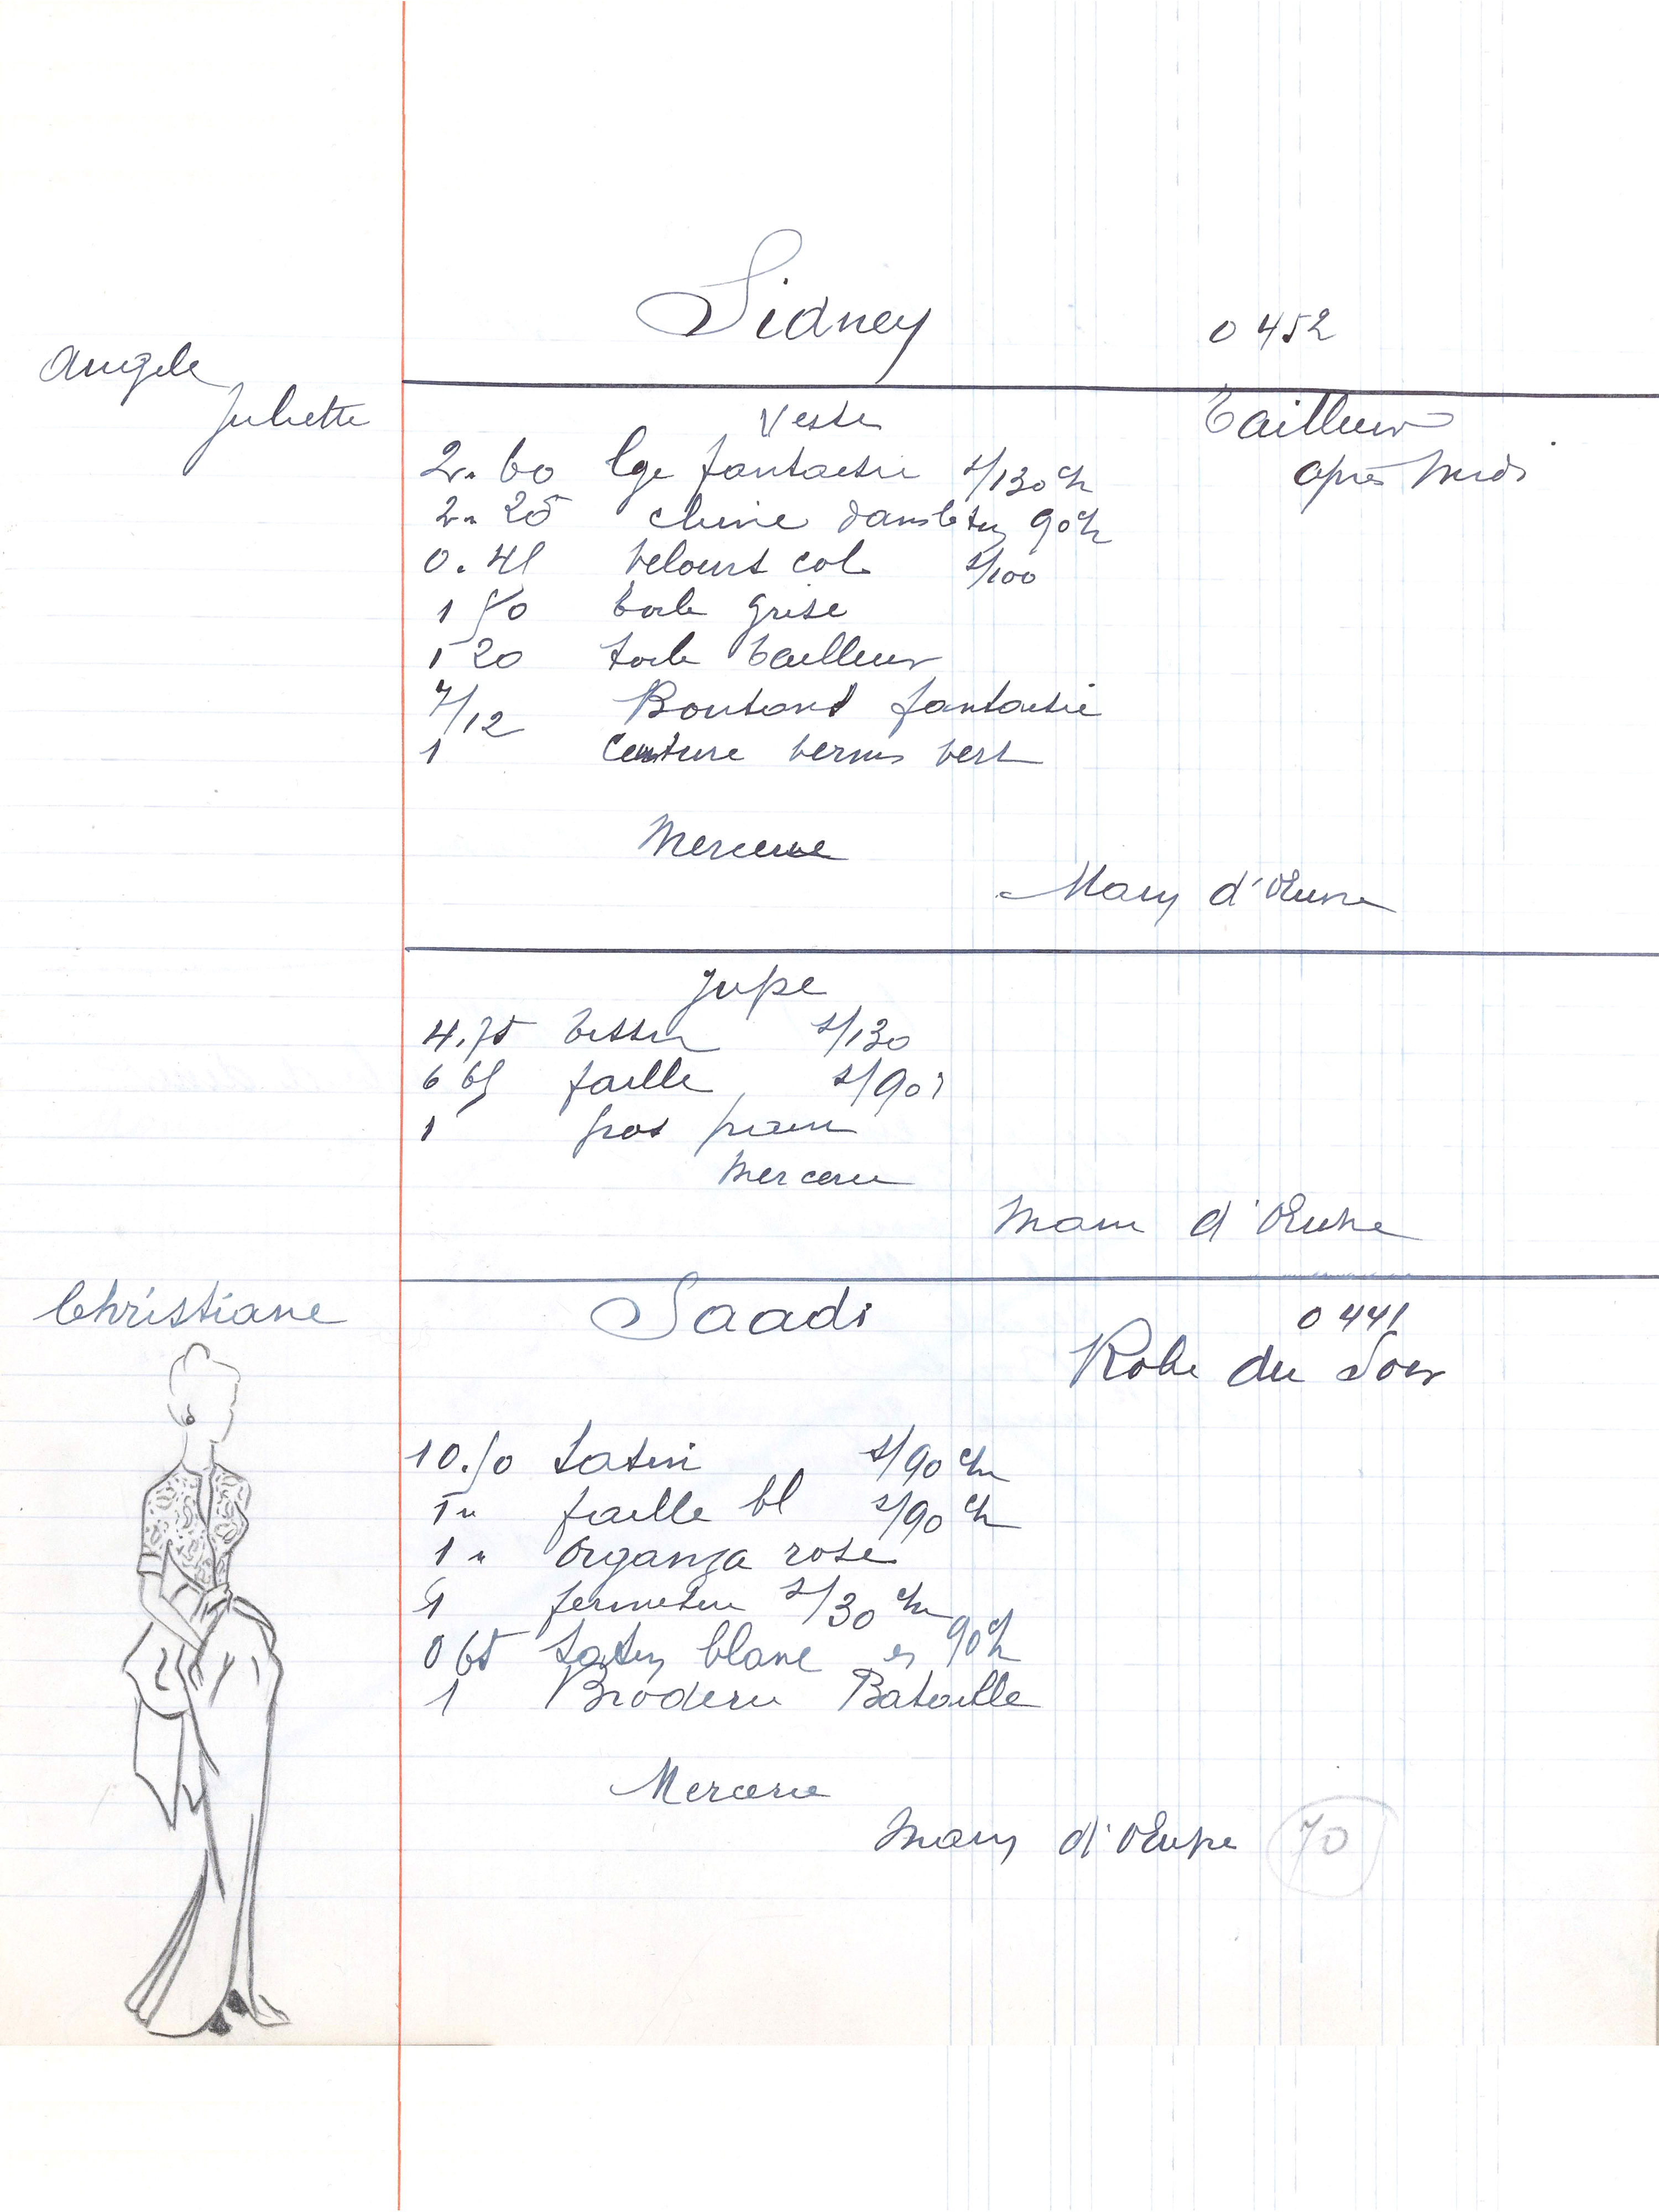 Sidney 0 452
Angele
Juliette
Veste Tailleur
2. 60 lge fantaisie s/130 cm après Midi
2. 25 chine 90 cm
0. 41 velours col s/100
1 50 toile grise
1 20 toile tailleur
7/12 Boutons fantaisie
1 Ceinture vernis vert
Mercerie
Main d'Œuvre
Jupe
4.75 tissu s/130
6 65 faille s/90
1 gros grain
Mercerie
Main d'Œuvre
Christiane Saadi 0 441
Robe du Soir
10.50 satin s/90 cm
1 " faille bl s/90 cm
1 " organza rose
1 fermeture s/30 cm
0 65 satin blanc en 90 cm
1 Broderie Bataille
Mercerie
Main d'Œuvre 70